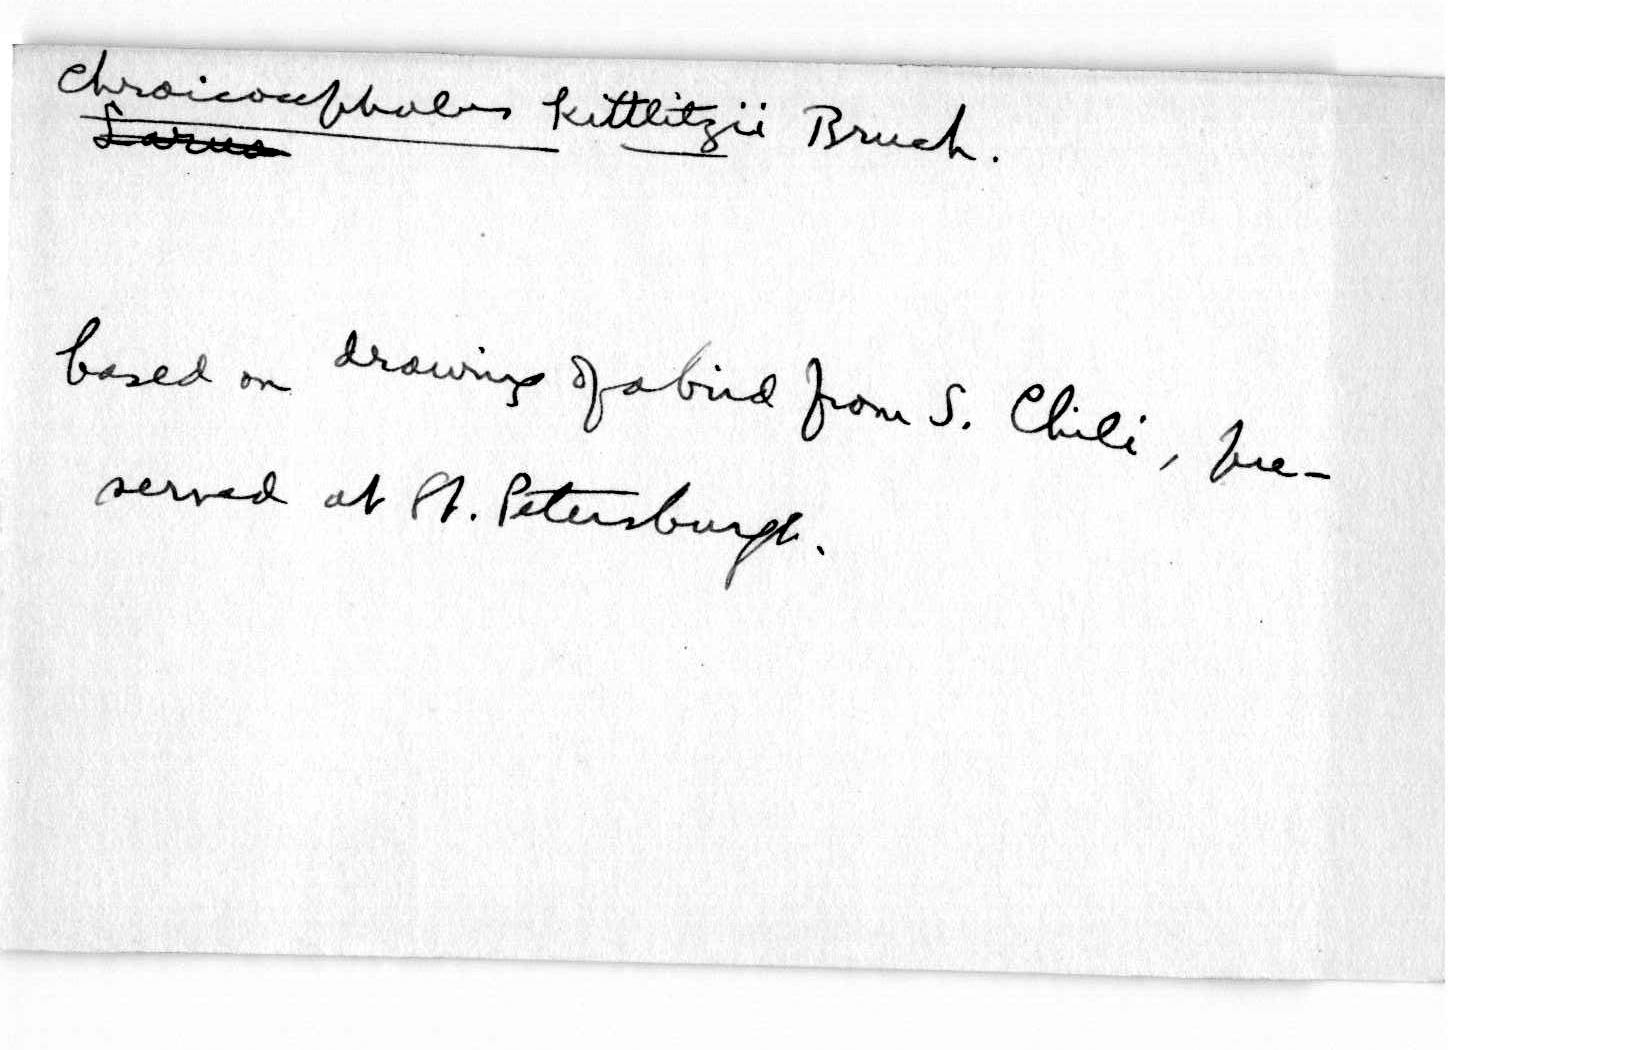 Chroicocephalus Kittlitzii Bruch.
Larus
based on drawing of a bird from S. Chili, pre-
served at St. Petersburgh.